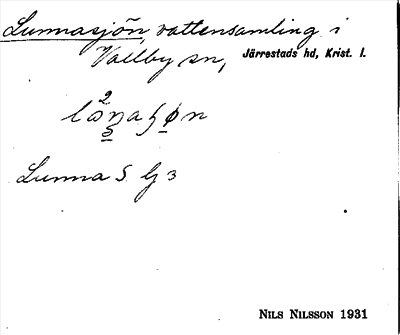 Lunnasjön, vattensamling i
Vallby sn, Järrestads hd, Krist. l.
Lunna S lj 3
NILS NILSSON 1931